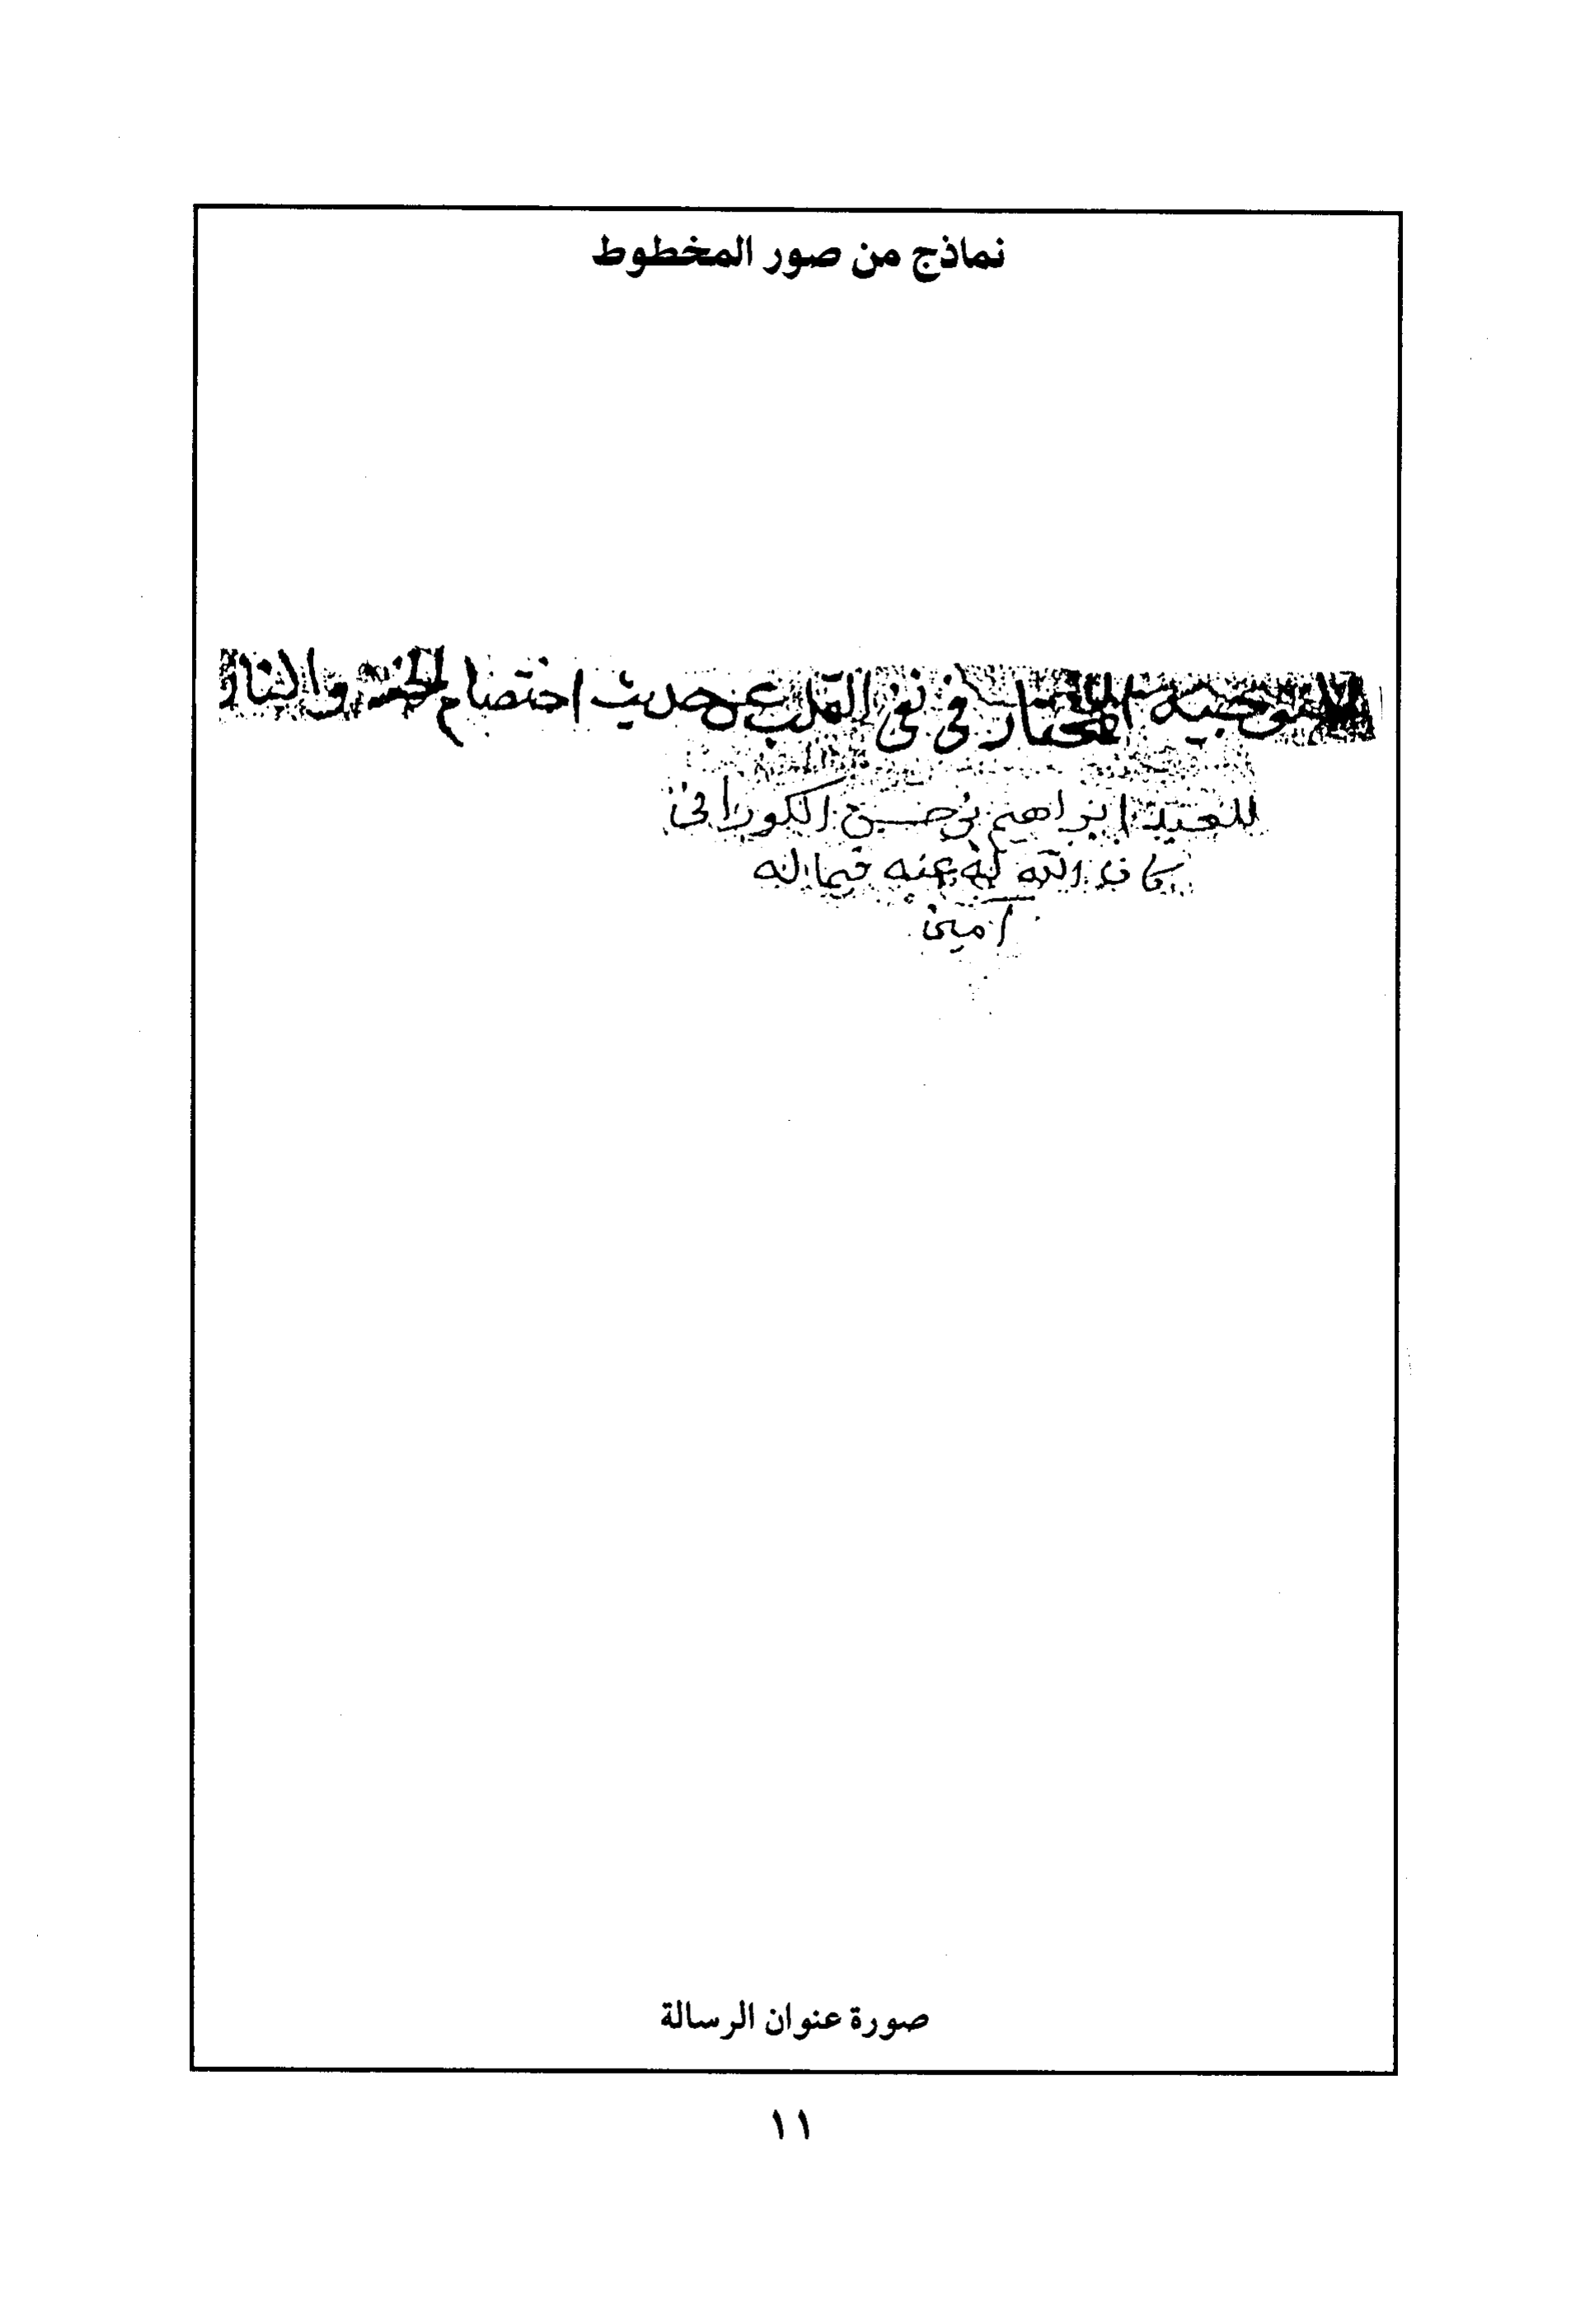 نماذج من صور المخطوط
التوجيه المختار في نفي القلب عن حديث اختصام الجنة والنار
للعبد ابراهيم بن حسن الكوراني
كان الله له عنه فيما له
آمين
صورة عنوان الرسالة
١١